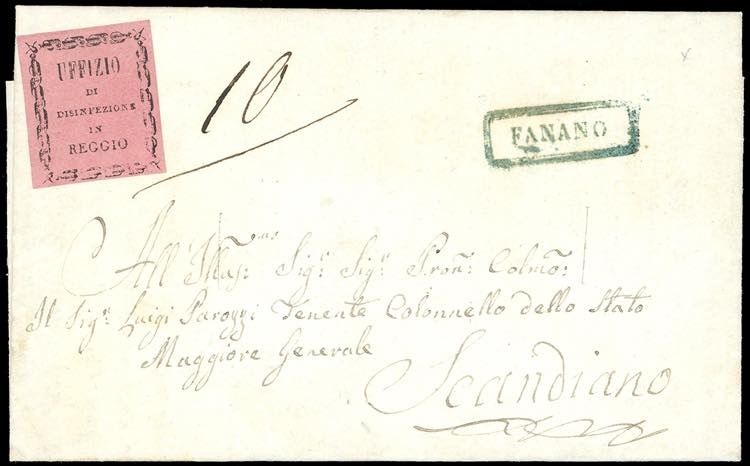 UFFIZIO
DI
DISINFEZIONE
IN
REGGIO
10
FANANO
All' Illas:mo Sigr Sigr Pron: Colmo:
Il Sigr Luigi Parozzi Tenente Colonnello dello Stato
Maggiore Generale
Scandiano